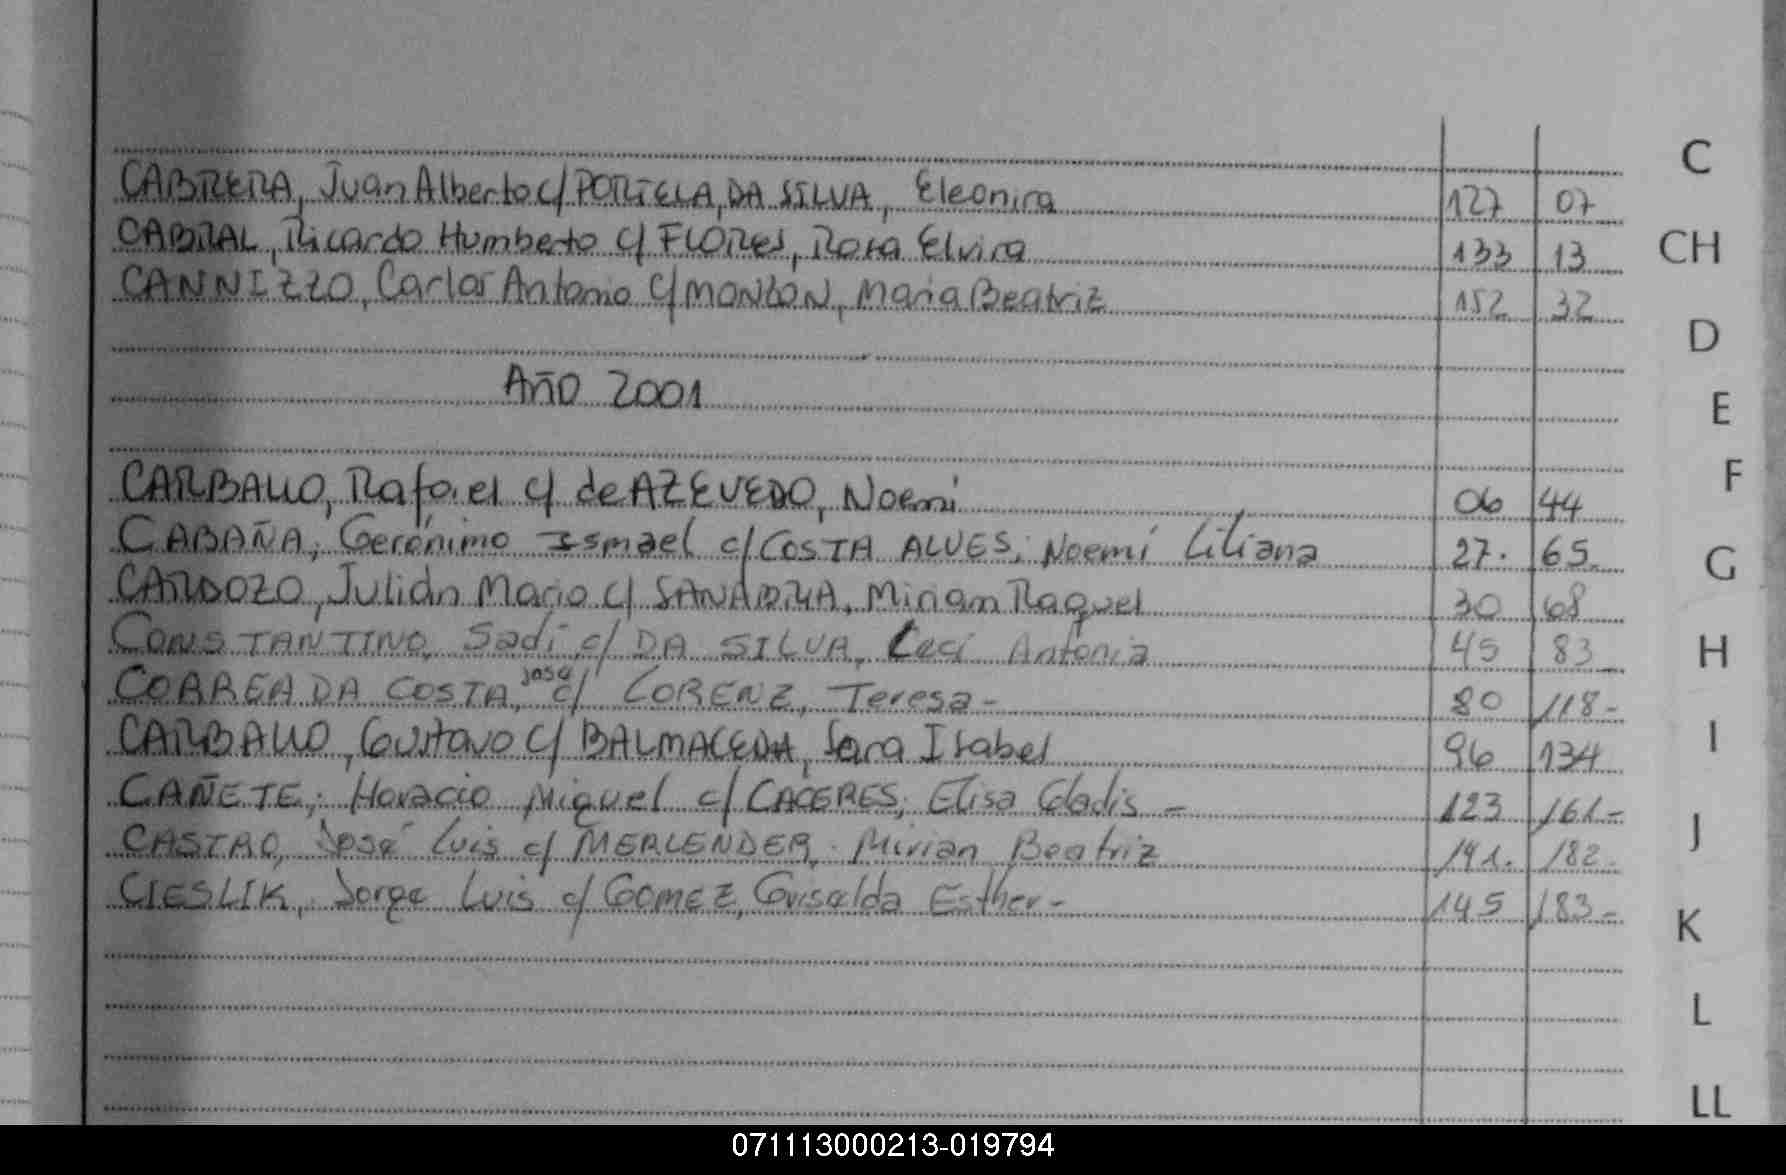 CABRERA, Juan Alberto c/ PORTELA DA SILVA, Eleonira 127 07
CABRAL, Ricardo Humberto c/ FLORES, Rosa Elvira 133 13
CANNIZZO, Carlos Antonio c/ MONZON, Maria Beatriz 152 32
AÑO 2001
CARBALLO, Rafael c/ de AZEVEDO, Noemi 06 44
CABAÑA, Gerónimo Ismael c/ COSTA ALVES, Noemí Liliana 27. 65.
CARDOZO, Julián Mario c/ SANABRIA, Miriam Raquel 30 68
CONSTANTINO, Sadi c/ DA SILVA, Leci Antonia 45 83
CORREA DA COSTA, José c/ LORENZ, Teresa - 80 118-
CARBALLO, Gustavo c/ BALMACEDA, Sara Isabel 96 134
CAÑETE, Horacio Miguel c/ CACERES, Elisa Gladis - 123 161-
CASTRO, José Luis c/ MERLENDER, Mirian Beatriz 182.
CIESLIK, Jorge Luis c/ GOMEZ, Griselda Esther - 145 183-
C
CH
D
E
F
G
H
I
J
K
L
LL
071113000213-019794